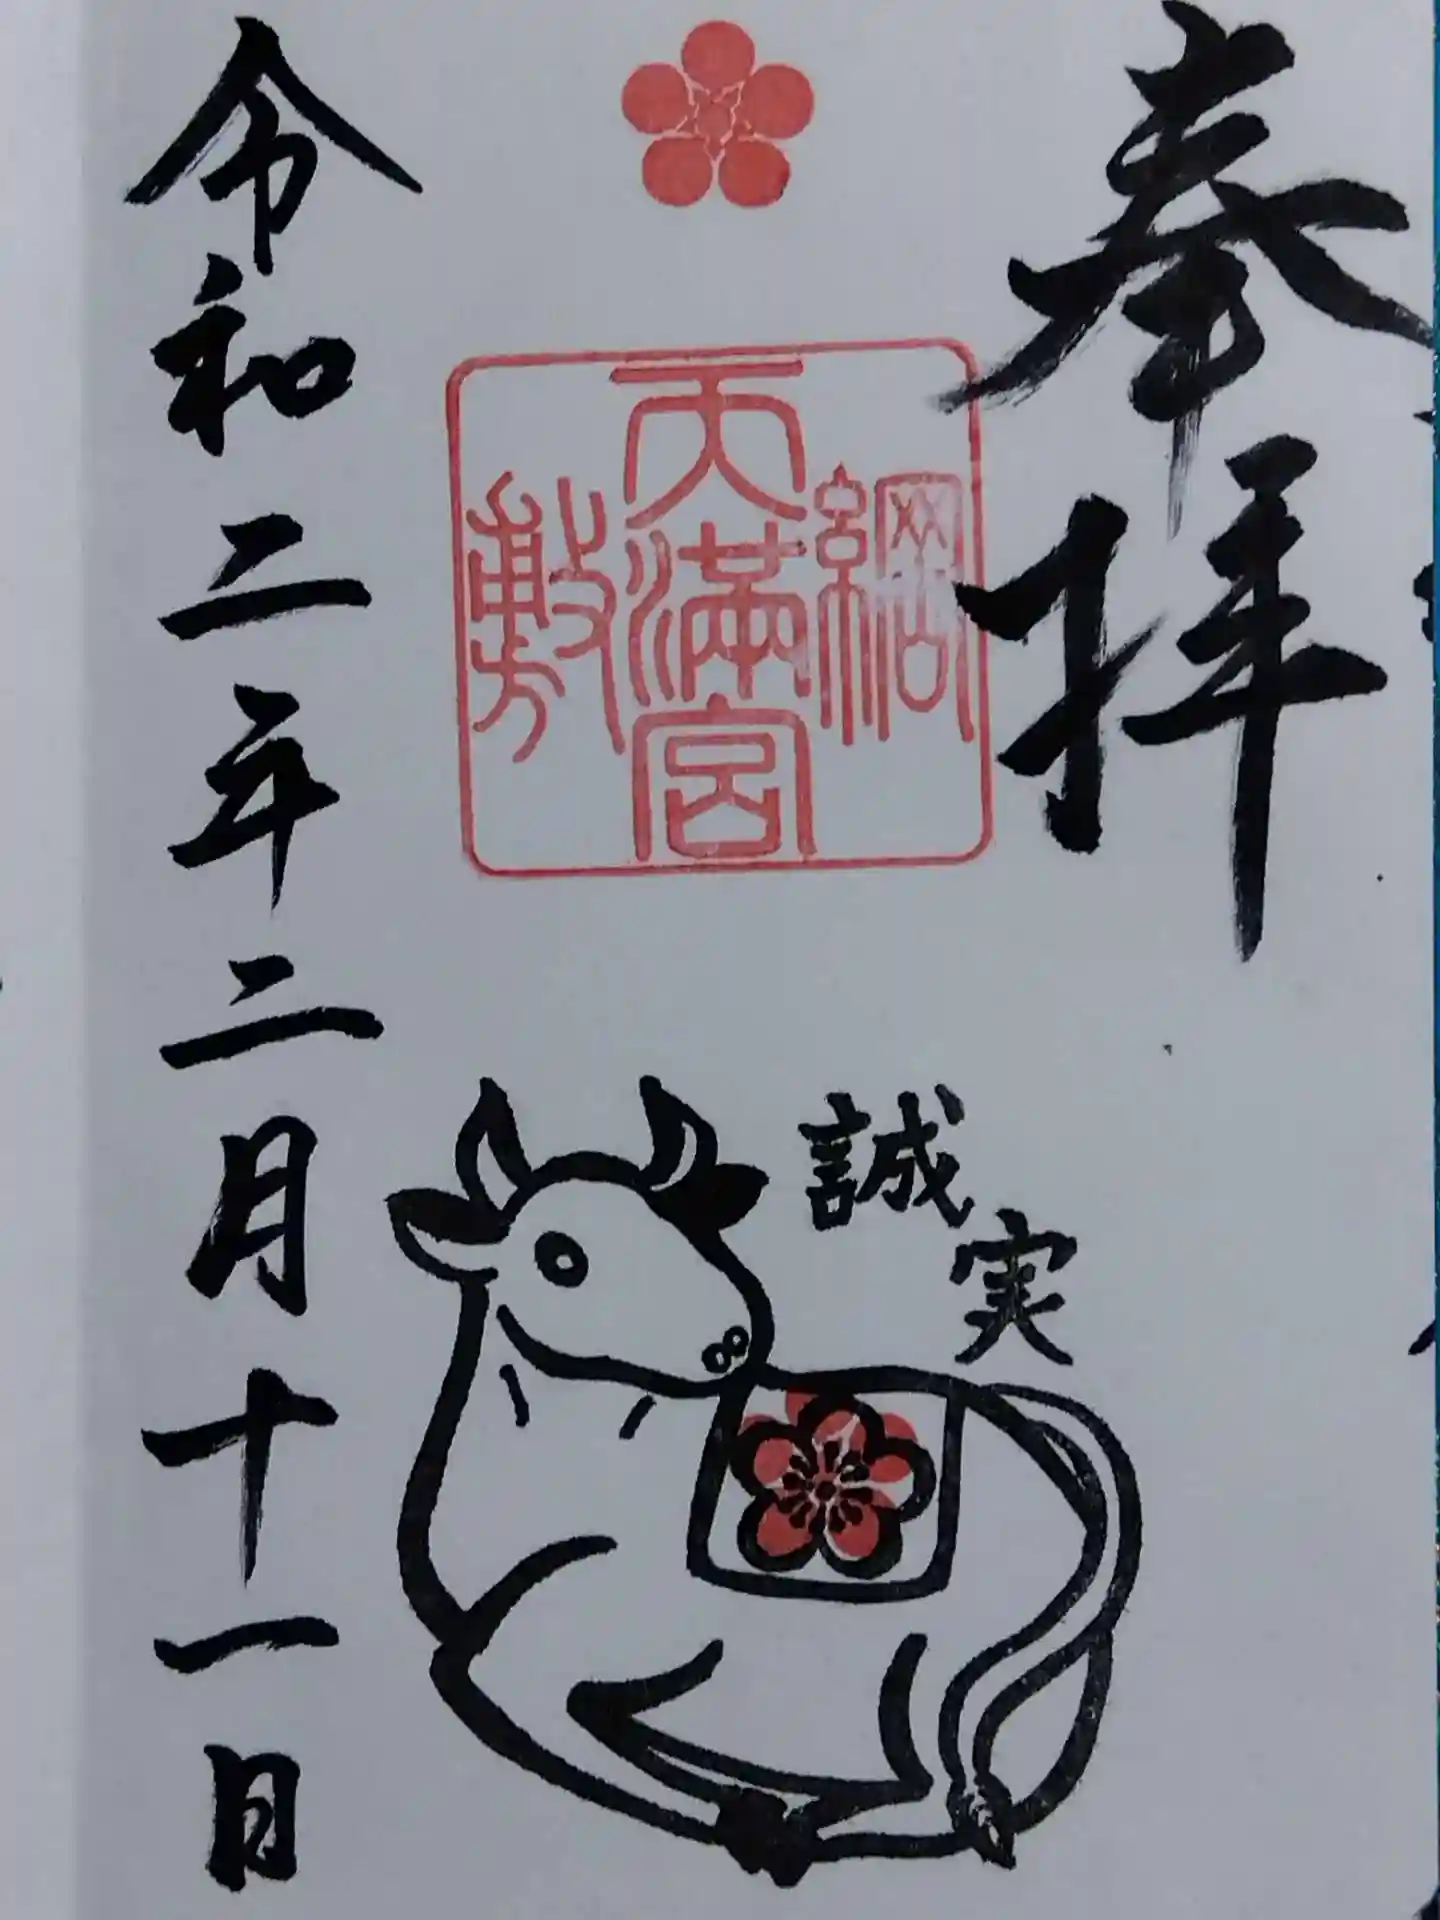 奉拝
綱敷
天満宮
誠実
令和二年二月十一日